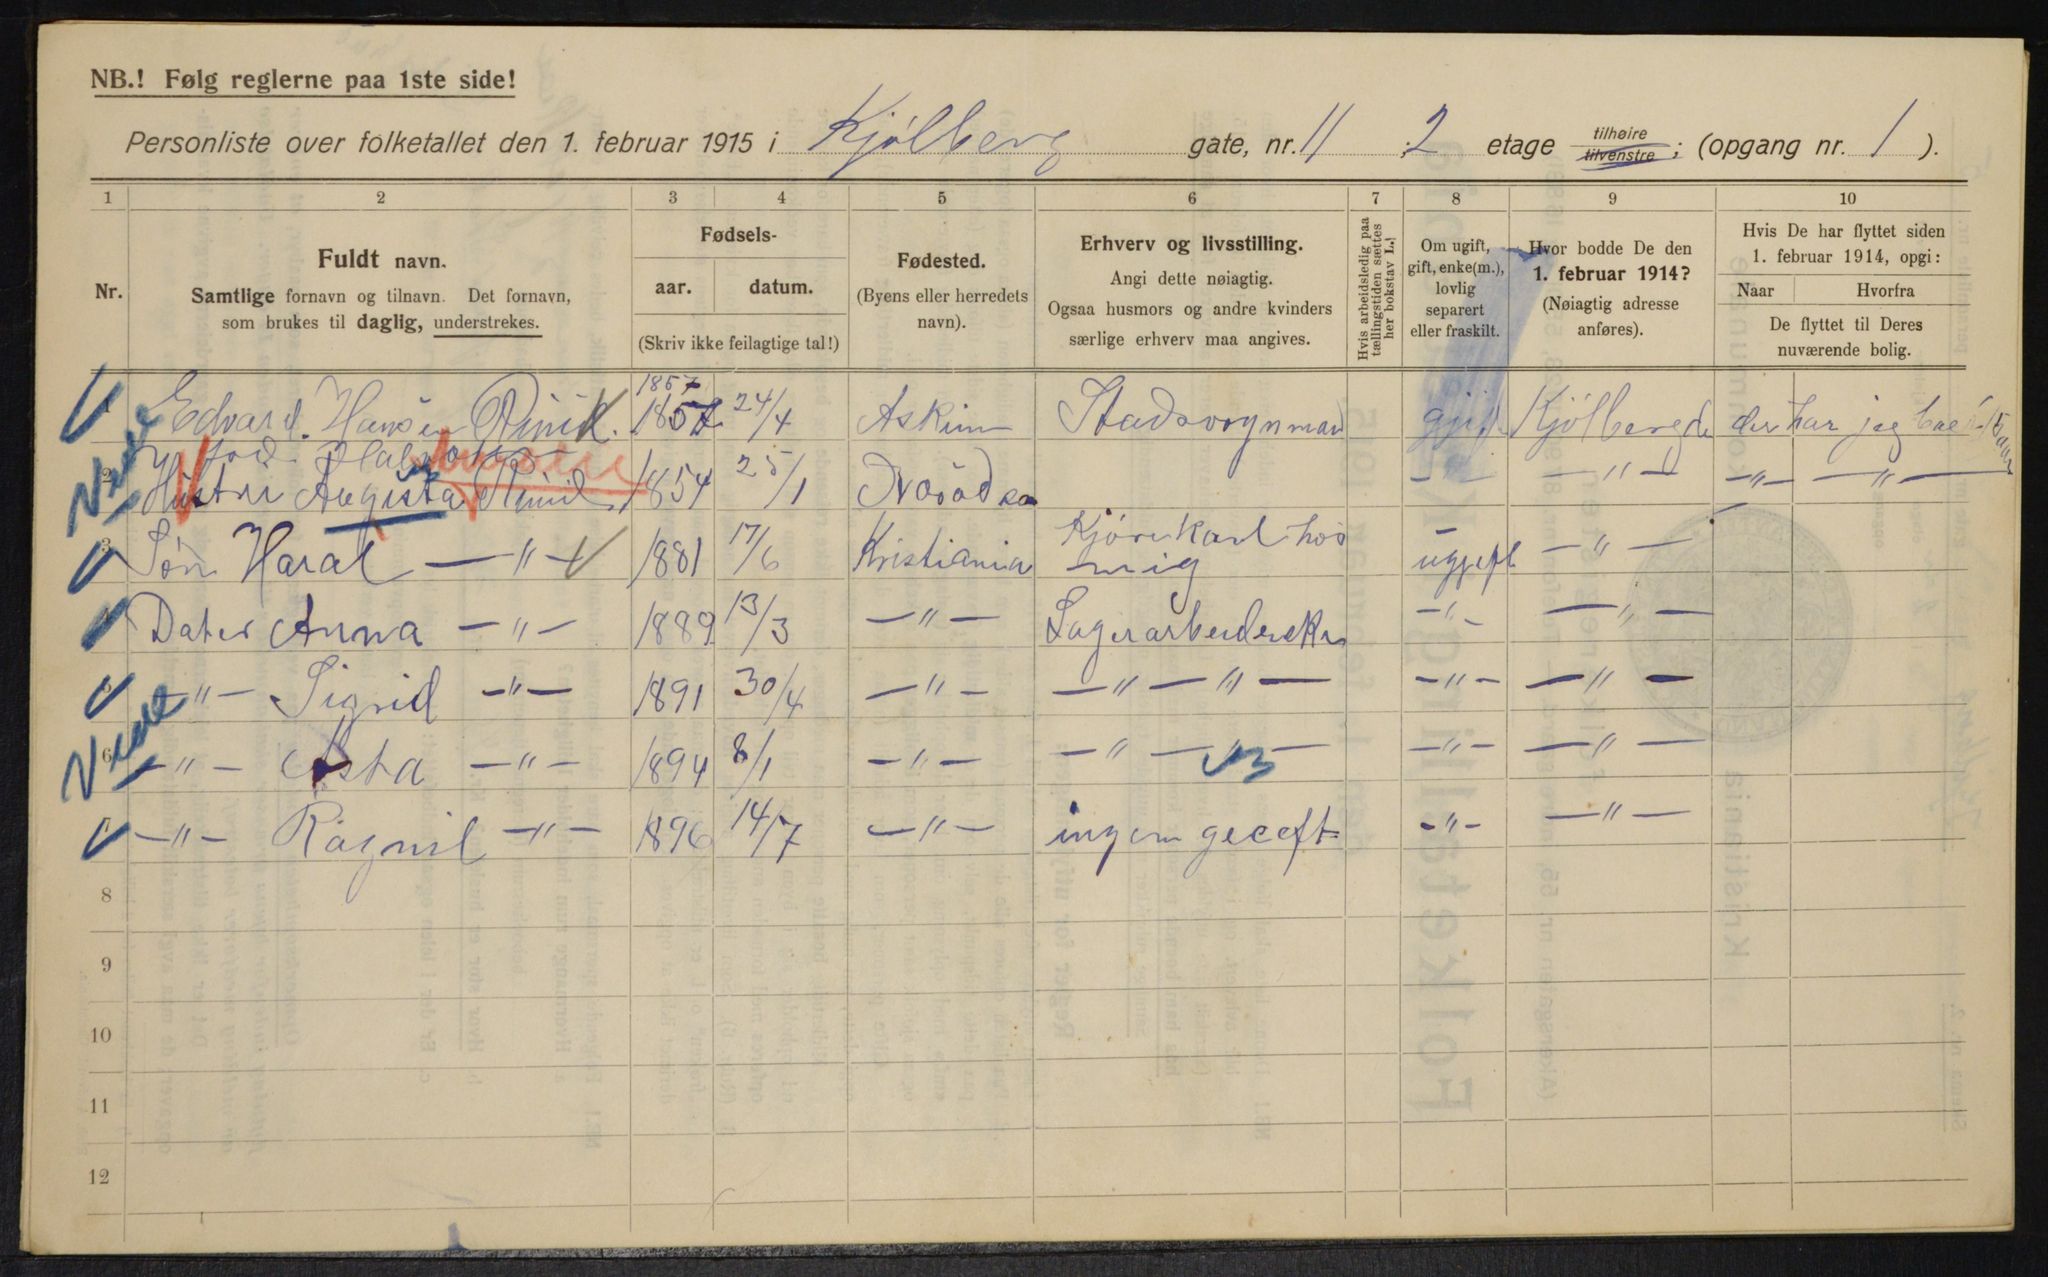 NB.! Følg reglerne paa 1ste side!
Personliste over folketallet den 1. februar 1915 i Kjølberg gate, nr. 11 ; 2 etage tilhøire tilvenstre ; (opgang nr. 1 ).
1 2 3 4 5 6 7 8 9 10
Nr.
Fuldt navn.
Samtlige fornavn og tilnavn. Det fornavn,
som brukes til daglig, understrekes.
Fødsels-
aar. datum.
(Skriv ikke feilagtige tal!)
Fødested.
(Byens eller herredets
navn).
Erhverv og livsstilling.
Angi dette nøiagtig.
Ogsaa husmors og andre kvinders
særlige erhverv maa angives.
Hvis arbeidsledig paa
tællingstiden sættes
her bokstav L.!
Om ugift,
gift, enke(m.),
lovlig
separert
eller fraskilt.
Hvor bodde De den
1. februar 1914?
(Nøiagtig adresse
anføres).
Hvis De har flyttet siden
1. februar 1914, opgi:
Naar Hvorfra
De flyttet til Deres
nuværende bolig.
1857
1 Edvard Hansen 1857 24/4 Askim gift der har jeg
2 Hustru Augusta 1854 25/1 — " — — " — — " — — " —
3 Søn Haral — " — 1881 17/6 Kristiania Kjørekarl hos mig ugjeft — " —
4 Dater Anna — " — 1889 13/3 — " — Lagerarbeiderske — " — — " —
5 — " — Sigrid — " — 1891 30/4 — " — — " — " — — " — — " —
6 — " — Asta — " — 1894 8/1 — " — — " — " — — " — — " —
7 — " — Ragnil — " — 1896 14/7 — " — ingen geceft — " — — " —
8
9
10
11
12